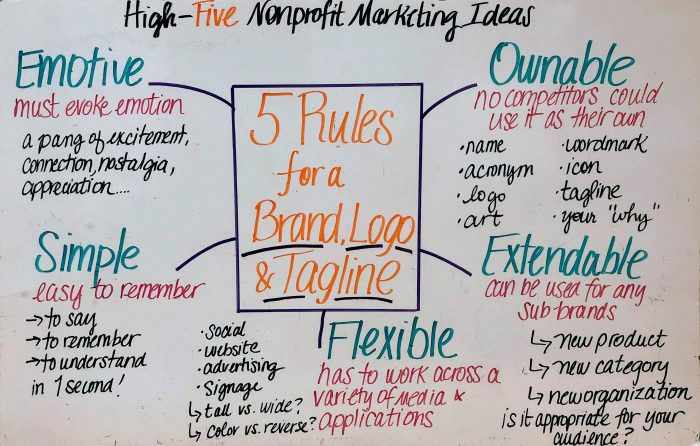 High-Five Nonprofit Marketing Ideas
5 Rules
for a
Brand, Logo
& Tagline
Emotive
must evoke emotion
a pang of excitement,
connection, nostalgia,
appreciation....
Ownable
no competitors could
use it as their own
•name
•acronym
•logo
•art
•wordmark
•icon
•tagline
•your "why"
Simple
easy to remember
→to say
→to remember
→to understand
in 1 second!
Flexible
has to work across a
variety of media &
applications
•social
•website
•advertising
•Signage
↳ tall vs. wide?
↳ color vs. reverse?
Extendable
can be used for any
sub-brands
↳ new product
↳ new category
↳ new organization
is it appropriate for your
audience?